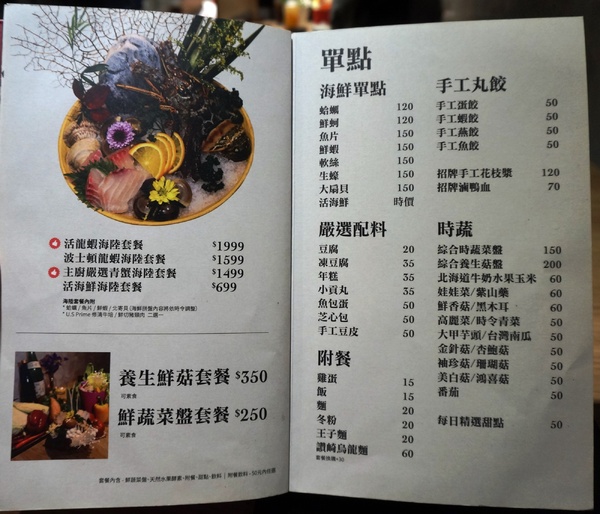 活龍蝦海陸套餐 $1999
波士頓龍蝦海陸套餐 $1599
主廚嚴選青蟹海陸套餐 $1499
活海鮮海陸套餐 $699
海陸套餐內附
養生鮮菇套餐 $350
可素食
鮮蔬菜盤套餐 $250
可素食
套餐內含 - 鮮蔬菜盤、天然水果酵素、附餐、甜點、飲料 | 附餐飲料 - 50元內任選
單點
海鮮單點
蛤蠣 120
鮮蚵 120
魚片 150
鮮蝦 150
軟絲 150
生蠔 150
大扇貝 150
活海鮮 時價
嚴選配料
豆腐 20
凍豆腐 35
年糕 35
小貢丸 35
魚包蛋 50
芝心包 50
手工豆皮 50
附餐
雞蛋 15
飯 15
麵 20
冬粉 20
王子麵 20
讚岐烏龍麵 60
套餐換購+30
手工丸餃
手工蛋餃 50
手工蝦餃 50
手工燕餃 50
手工魚餃 50
招牌手工花枝漿 120
招牌滷鴨血 70
時蔬
綜合時蔬菜盤 150
綜合養生菇盤 200
北海道牛奶水果玉米 60
娃娃菜/紫山藥 60
鮮香菇/黑木耳 60
高麗菜/時令青菜 50
大甲芋頭/台灣南瓜 50
金針菇/杏鮑菇 50
袖珍菇/珊瑚菇 50
美白菇/鴻喜菇 50
番茄 50
每日精選甜點 50